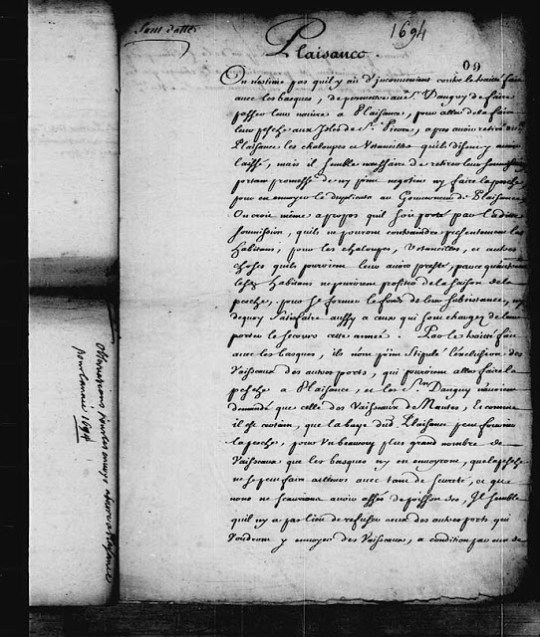 Sans datte
1694
Plaisance.
09
On n'estime pas qu'il y ait d'inconvenient contre le traité fait
avec les basques, de permettre au Sr. Danguy de faire
passer leur navire a Plaisance, pour aller de la faire
leur pesche aux Isles de St. Pierre, apres avoir retiré
Plaisance les chaloupes et qu'ils disent y avoir
laissé, mais il semble necessaire de retirer leur soumission
portant promesse de n'y point negotier ny faire la pesche
pour en envoyer le duplicata au Gouverneur de Plaisance
On croit même a propos qu'il soit porté par ladite
soumission, qu'ils ne pourront contraindre les
habitans, pour les chaloupes, et autres
choses qu'ils pourroient leur avoir presté, parce
habitans ne pourroient profiter de la saison de la
pesche, pour se former le fonds de leur subsistance, ny
dequoy satisfaire aussy a ceux qui sont chargez de leur
porter le secours cette année. Par le traité fait
avec les basques, ils n'ont point stipulé l'exclusion des
Vaisseaux des autres ports, qui peuvent aller faire la
pesche a Plaisance, et les Srs. Danguy n'avoient
demandé que celle des Vaisseaux de Nantes, Et comme
il est certain, que la baye dud. Plaisance peut fournir
la pesche, pour un beaucoup plus grand nombre de
Vaisseaux que les basques n'y en envoyent, que la pesche
ne se peut faire ailleurs avec tant de seureté, et que
nous ne scaurions avoir assés de poisson sec, Il semble
qu'il n'y a pas lieu de refuser ceux des autres ports qui
voudront y envoyer des Vaisseaux, a condition
Observations pour les
pour l'année 1694